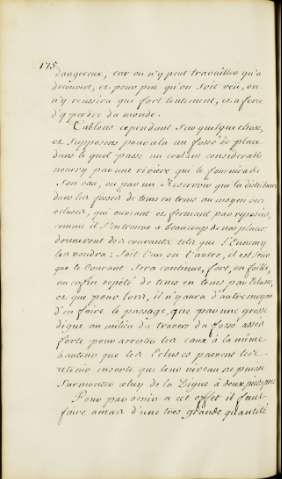 175
dangereux, car on n'y peut travailler qu'a
decouvert, et pour peu qu'on soit vëu, on
n'y reussira que fort lentement, et a force
d'y perdre du monde.
Tablons cependant sur quelque chose,
et supposons pour cela un fossé de place
dans le quel passe un courant considerable
nourry par une riviere qui le fournisse de
son eau, ou par un Reservoir qui la distribue
dans les fossés de tems en tems au moyen des
ecluses, qui ouvrant et fermant par reprises,
comme il s'entretient a beaucoup de nos places
donneront des courants tels que l'Ennemy
les voudra; soit l'un ou l'autre, il est seur
que le Courant sera continuel, fort, ou foible,
ou enfin repeté de tems en tems par Ecluse,
et que pour lors, il n'y aura d'autre moyen
d'en faire le passage, que par une grosse
digue au milieu du travers du fossé assés
forte pour arrester les eaux à la même
hauteur que les Ecluses peuvent les
retenir en sorte que leur niveau ne puisse
surmonter celuy de la Digue à deux pieds près
Pour parvenir a cet effet il faut
faire amas d'une tres grande quantité